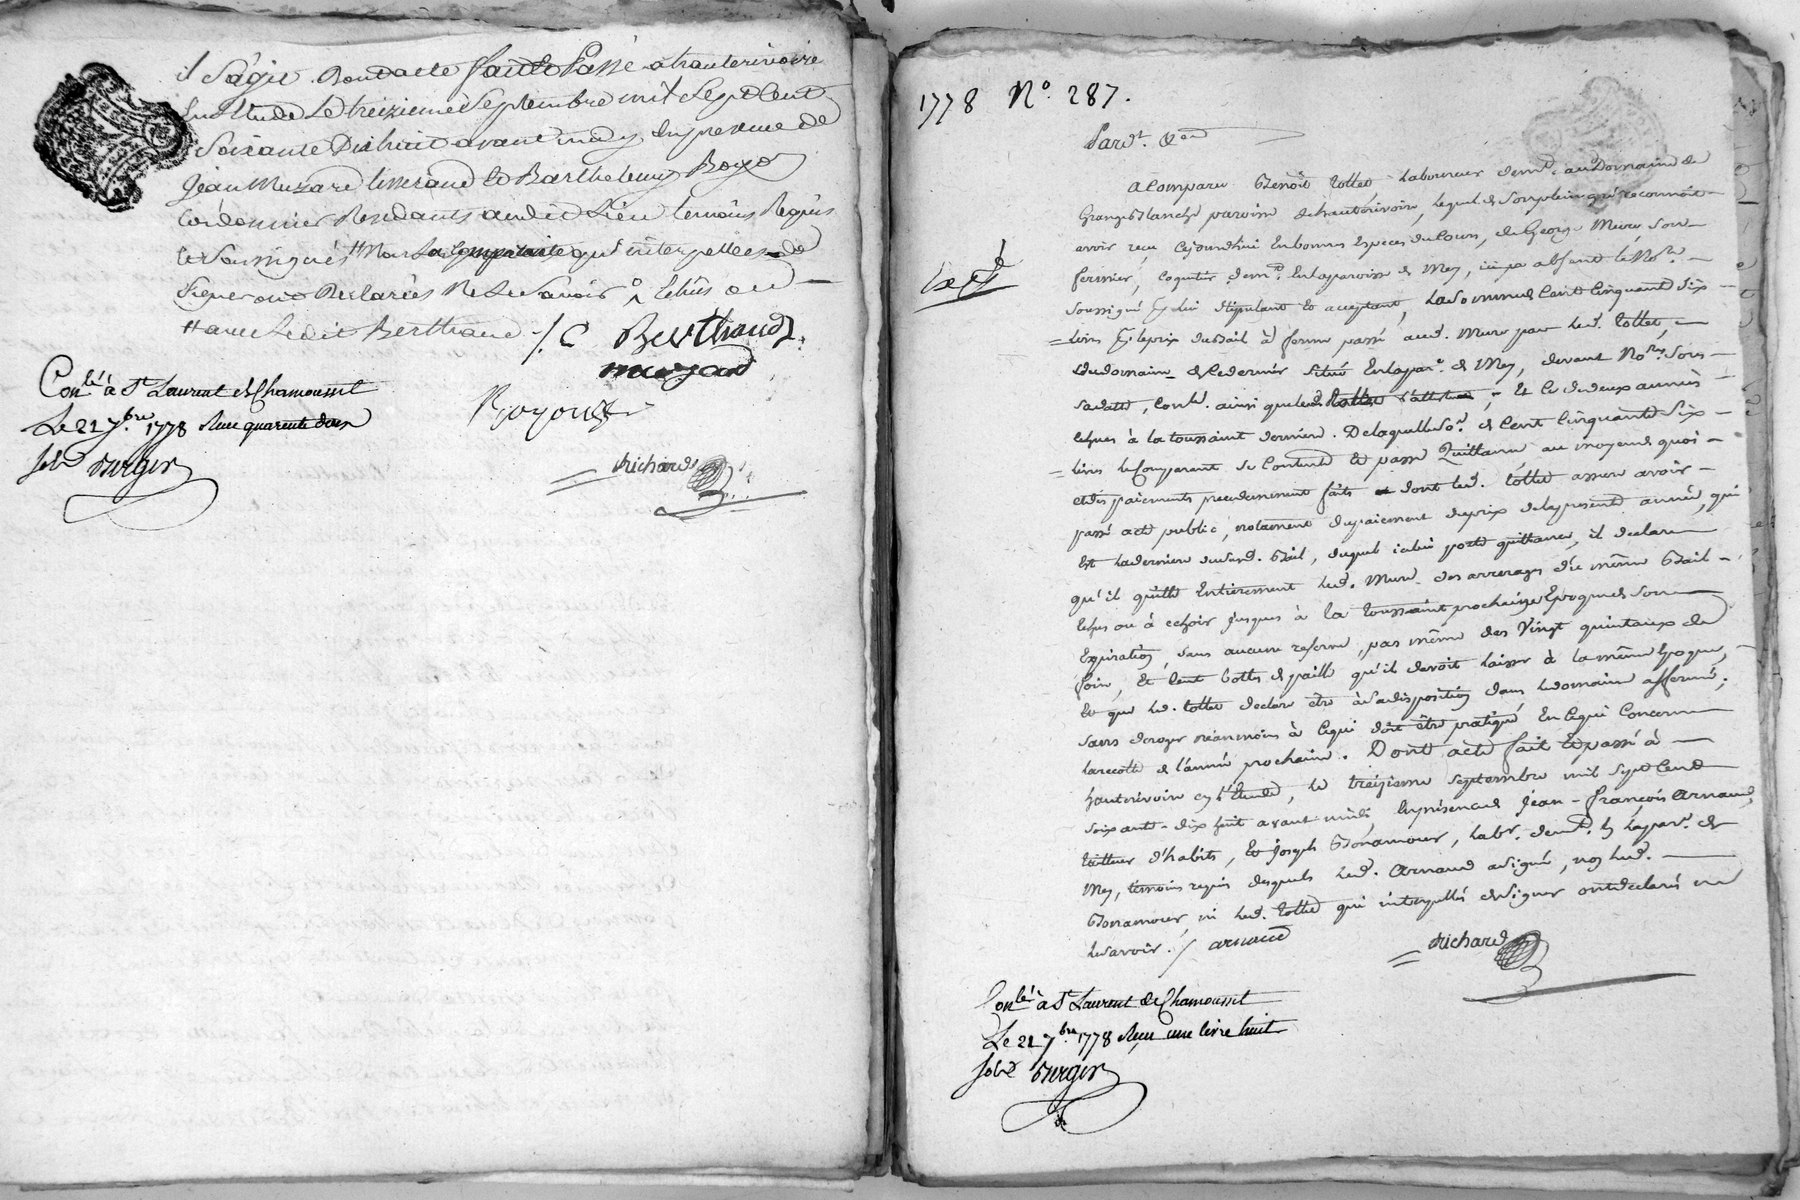 il s'agit. Dont acte fait et Passé a hauterivoire
En l'Etude Le treizieme Septembre mil Sept Cent
Soixante Dix huit avant midy En presence de
Jean Muzard tisserand et Barthelemy Boyo
Cordonnier Residants audit Lieu temoins Requis
et Soussignés # Non La Comparante qui interpellée de
signer a Declaré Ne Le Savoir
# avec Ledit Berthaud ./. C Berthaud
muzard
Conlé à St Laurent de Chamousset
Le 21 7bre 1778 Reçu quarente deux
Richard
1778 No. 287.
Pardt.
A Comparu Benoît Tollet, Laboureur demt. au Domaine de
Grange Blanche paroisse d'hauterivoire, Lequel de Son plein gré reconnoît
avoir reçu Cejourdhui En bonnes Especes du Cours, de George Mure, Son
fermier, demt. En la paroisse de Meys, ici pa absent Le Nore.
Soussigné pr. Lui Stipulant et acceptant, La Somme de Cent Cinquante Six
livres pr. le prix du Bail à ferme passé aud. Mure par Led. Tollet,
du domaine Situé En la parse. de Meys, devant Nore. Sous
Ce de deux années
Echues à la toussaint derniere. De laquelle Se. de Cent Cinquante Six
livres Le Comparant Se Contente et passe Quittance au moyen de quoi
et des paiements precedemment faits dont Led. Tollet assure avoir
passé acte public, notamment du paiement du prix de la presente année, qui
Est La derniere dudit Bail, duquel icelui porte quittance, il declare
qu'il quitte Entierement Led. Mure des arrerages du même Bail
Echus ou à echoir jusques à la toussaint prochaine Epoque de Son
Expiration, Sans aucune reserve, pas même des Vingt quintaux de
foin, Et Cent bottes de paille qu'il devoit Laisser à la même Epoque,
Et que Led. Tollet declare être à Sa disposition dans Le domaine affermé;
Sans deroger néanmoins à Cequi doit être pratiqué En Cequi Concerne
La recolte de l'année prochaine. Dont acte fait Et passé à
hauterivoire En l'Etude, Le treizieme Septembre mil Sept Cent
Soixante-dix huit avant midi, En présence de Jean-François Arnaud,
tailleur d'habits, Et Joseph Bonamour, Labr. demt. En La parse. de
Meys, témoins requis desquels Led. Arnaud a Signé, non Led.
Bonamour, ni Led. Tollet qui interpellés de Signer ont declaré ne
Le Savoir. / arnaud
Richard
Conlé à St Laurent de Chamousset
Le 21 7bre 1778 Reçu une livre huit